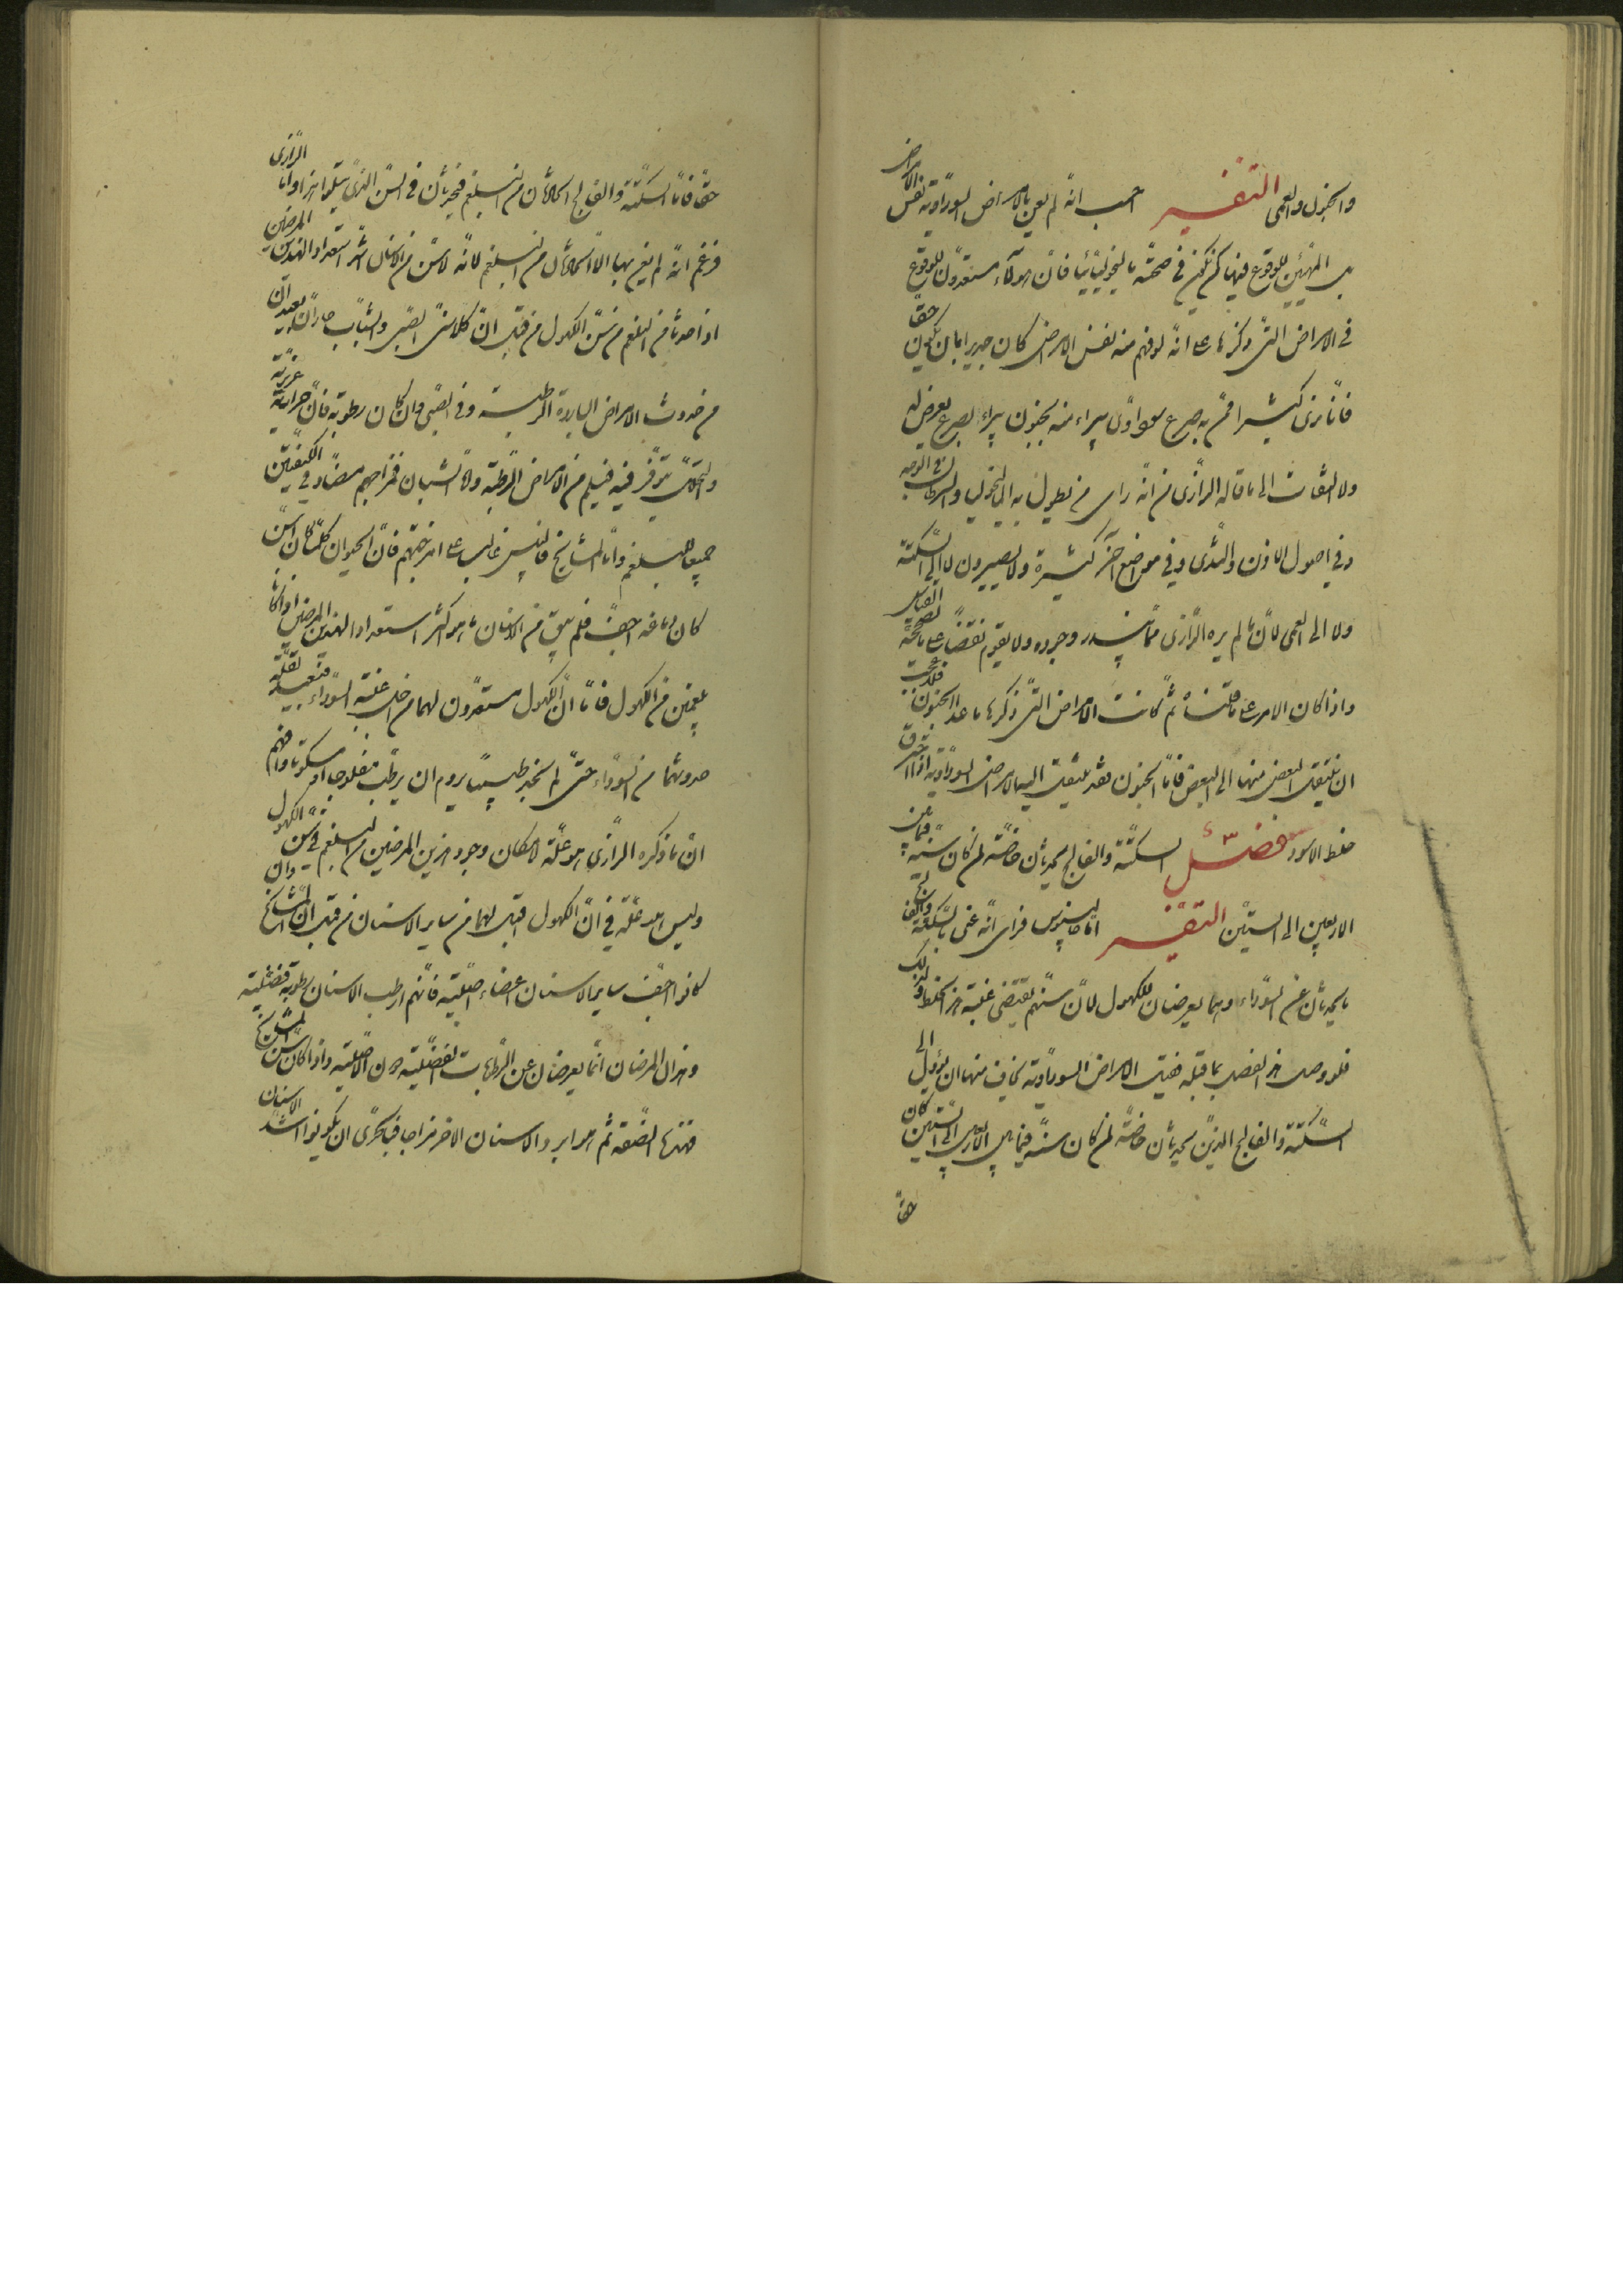 والجنون والعمى التفسير احسب انه لم يعن بالامراض السوداوية نفس الامراض
بل المتهيئين للوقوع فيها كمن يكون في صحته ماليخوليائيا فان هولآء مستعدون للوقوع
في الامراض التي ذكرها على انه لو فهم منه نفس الامراض كان جديرا بان يكون حقا
فانا نرى كثيرا ممن به صرع سوداوي يبراء منه بجنون يبراء بصرع يعرض له
ولا التفات الى ما قاله الرازي من انه راى من يطول به الماليخوليا والسرطان في الوجه
وفي اصول الاذن والثدى وفي مواضع آخر كثيرة ولا يصيرون لا الى السكتة
ولا الى العمى لان ما لم يره الرازي مما يندر وجوده ولا يقوم نقضا على ما صححه القياس
واذا كان الامر على ما قلنا ثم كانت الامراض التي ذكرها ما عدا الجنون
ان ينتقل البعض منها الى البعض فاما الجنون فقد ينتقل اليه الامراض السوداوية اذا احترق
خلط الاسود فصل السكتة والفالج يحدثان خاصة لمن كان سنه فيما بين
الاربعين الى الستين التفسير اما جالينوس فراى انه عنى بالسكتة والفالج
ما يحدثان عن السوداء وهما يعرضان للكهول لان سنهم يقتضى غلبة هذا الخلط ولذلك
فلو وصل هذا الفصل بما قبله فقيل الامراض السوداوية يخاف منها ان يؤول الى
السكتة والفالج الذين يحدثان خاصة لمن كان سنه فيما بين الاربعين الى الستين كان
حقا
حقا فاما السكتة والفالج الكائنان من البلغم فيحدثان في السن الذي يتلوا هذا واما الرازي
فزعم انه لم يعن بهما الا الكائنان من البلغم لانه لا سن من الاسنان اشد استعدادا لهذين المرضين
اذا حدثا من البلغم من سن الكهول من قبل ان كلا سنى الصبى والشباب حاران بعيدان
من حدوث الامراض الباردة الرطبة وفي الصبى وان كان رطوبة فان حرارته غريزية
والتحلل يتوفر فيه فيسلم من الامراض الرطبة واما الشبان فمزاجهم مضاد في الكيفيتين
جميعا للبلغم واما المشايخ فاليبس غالب على امزجتهم فان الحيوان كلما كان اسن
كان دماغه اجف فلم يبق من الاسنان ما هو اكثر استعدادا لهذين المرضين اذا كانا
بلغميين من الكهول فاما ان الكهول مستعدون لهما من اجل غلبة السوداء فبعيد لقلة
حدوثهما من السوداء حتى لم نجد طبيبا يروم ان يرطب مفلوجا او مسكوتا وافهم
ان ما ذكره الرازي هو علة لامكان وجود هذين المرضين من البلغم في سن الكهول وان
وليس هو علة في ان الكهول اقبل لهما من ساير الاسنان من قبل ان المشايخ
كانوا اجف ساير الاسنان اعضاء اصلية فانهم ارطب الاسنان رطوبة فضلية
وهذان المرضان انما يعرضان عن الرطوبات الفضلية دون الاصلية واذا كان سن المشايخ
فيه هذا الصفة ثم هو ابرد الاسنان الاخر مزاجا فبالحرى ان يكونوا اشد الاسنان